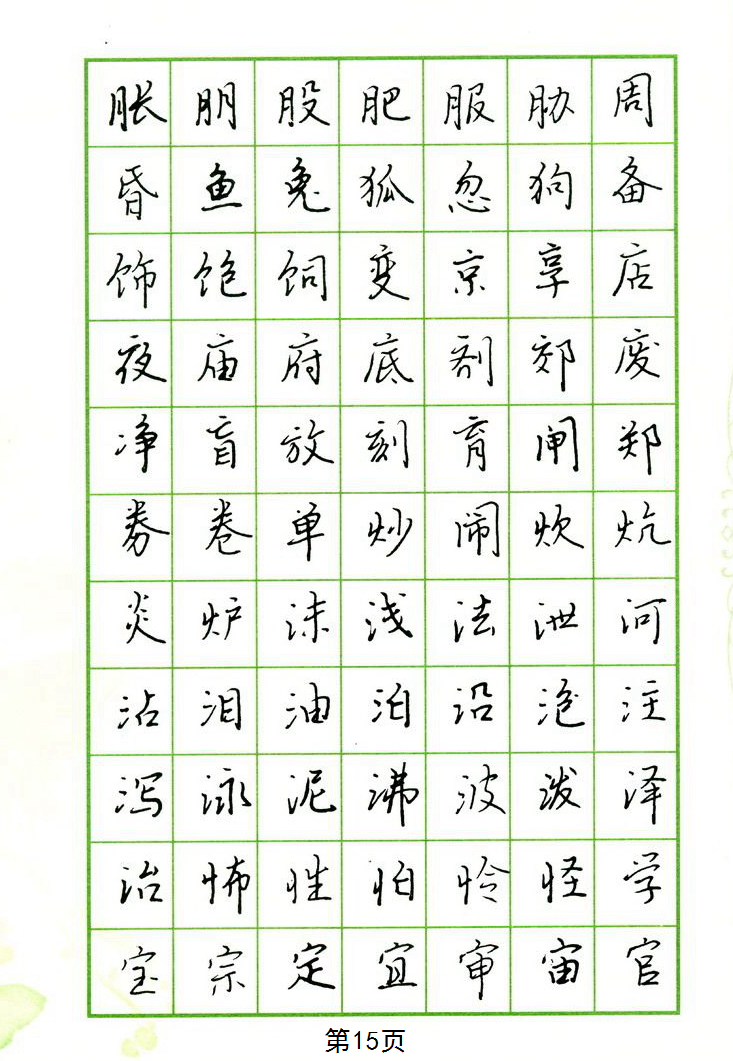 胀朋股肥服胁周
昏鱼兔狐忽狗备
饰饱饲变京享店
夜庙府底剂郊废
净盲放刻育闸郑
券卷单炒闹炊炕
炎炉沫浅法泄河
沾泪油泊沿泡注
泻泳泥沸波泼泽
治怖性怕怜怪学
宝宗定宜审宙官
第15页